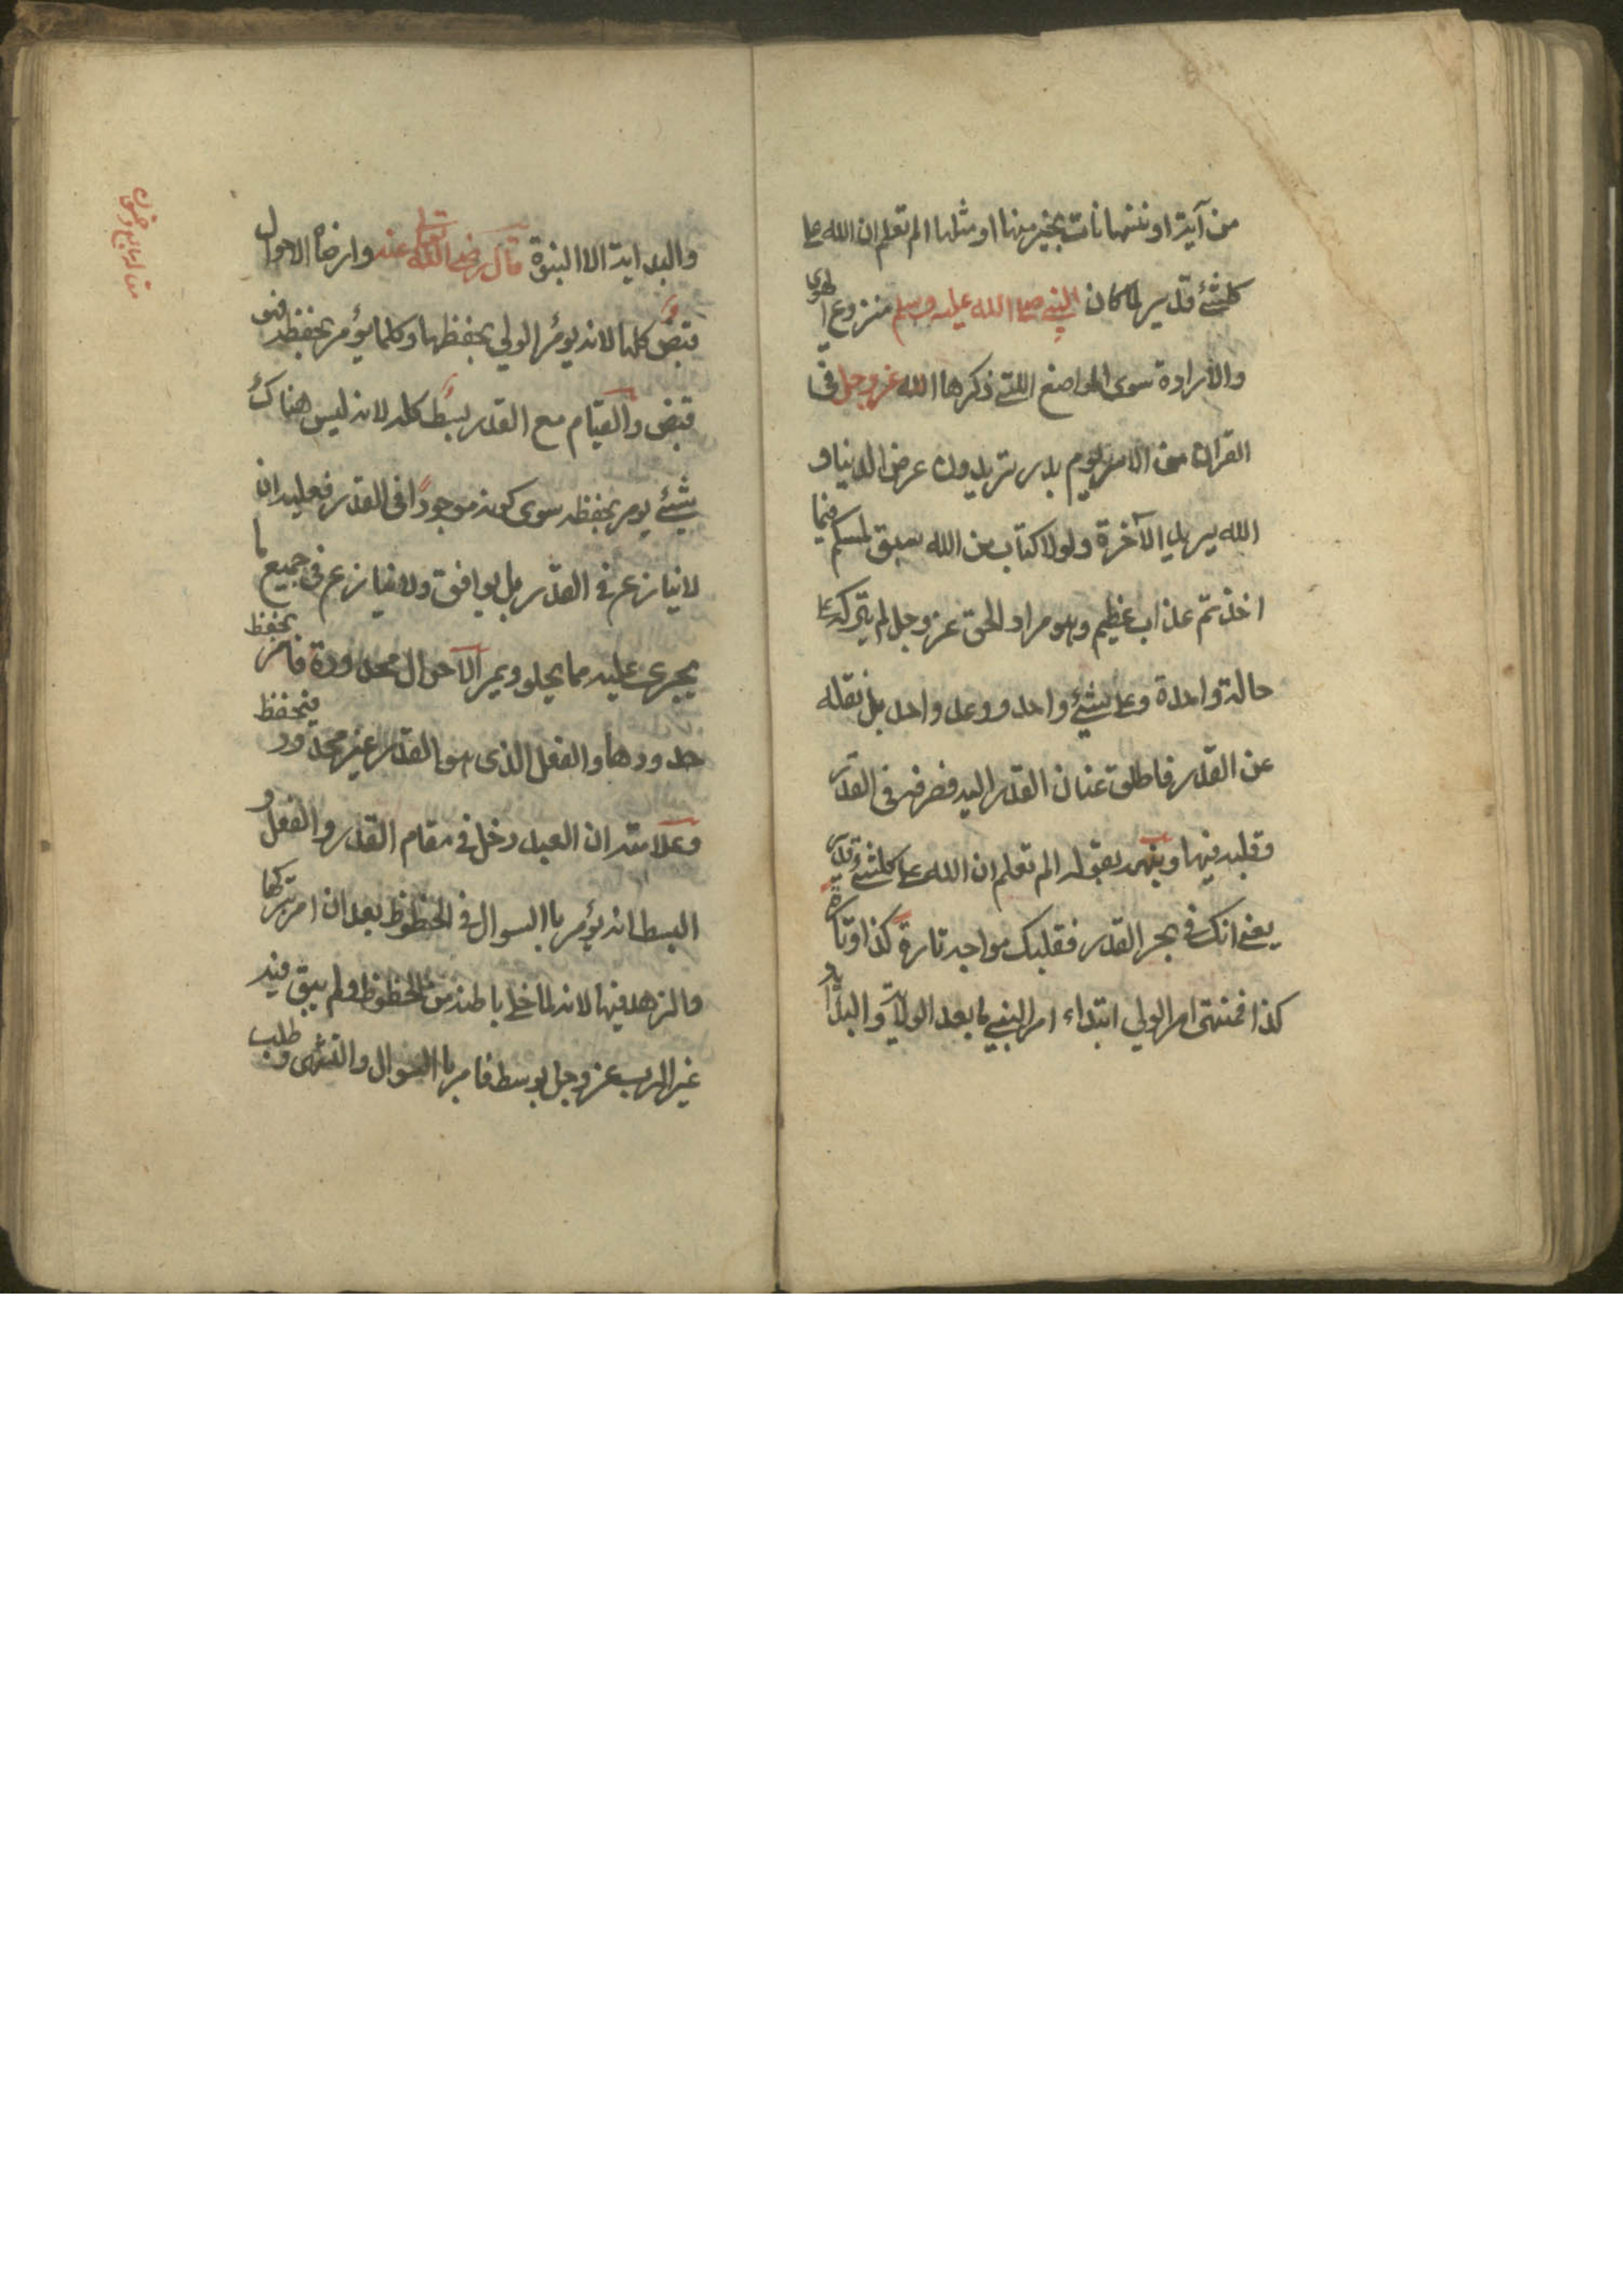 من آية او ننسها نات بخير منها او مثلها الم تعلم ان الله على
كلشئ قدير لما كان النبي صلى الله عليه وسلم منزوع الهوى
والارادة سوى المواضع اللتي ذكرها الله عز وجل في
القران من الاسر يوم بدر تريدون عرض الدنيا و
الله يريد الآخرة ولولا كتاب من الله سبق لمسكم فيما
اخذتم عذاب عظيم وهو مراد الحق عز وجل لم يتركه على
حالة واحدة وعلى شئ واحد ووعد واحد بل نقله
عن القدر فاطلق عنان القدر اليه فصرفه في القدر
وقلبه فيها وينهه بقوله الم تعلم ان الله على كلشئ قدير
يعني انك في بحر القدر فقلبك مواجه تارة كذا وتارة
كذا فمنتهى امر الولي ابتداء امر النبي ما بعد الولاية والبداية
والبداية الا النبوة قال رضي الله تعالى عنه وارضاه الاحوال
قبض كلها لانه يؤمر الولي بحفظها وكلما يؤمر بحفظه فهو
قبض والقيام مع القدر بسط كله لانه ليس هناك
شيئ يومر بحفظه سوى كونه موجودًا في القدر فعليه ان
لا ينازع في القدر بل يوافق ولا ينازع في جميع ما
يجري عليه مما يحلو ويمر الاحوال محدودة فامر بحفظ
حدودها والفعل الذي هو القدر غير محدود فيحفظ
وعلامته ان العبد دخل في مقام القدر والفعل و
البسط انه يؤمر باالسوال في الحظوظ بعد ان امر بتركها
والزهد فيها لانه لما خلي باطنه من الحظوظ ولم يبق فيه
غير الرب عز وجل بوسط فامر باالسوال والتشهي وطلب